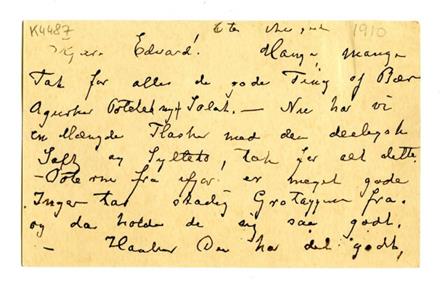 K4487 1910
Kjære Edvard! Mange mange
Tak for alle de gode Ting og Bær
Agurker Poteter og Salat. – Nu har vi
en Mængde Flasker med den deiligste
Saft og Syltetø, tak for alt dette
– fra ifjor er meget gode
Inger har fra.
og da holder de sig saa godt.
– Haaber Du har det godt,